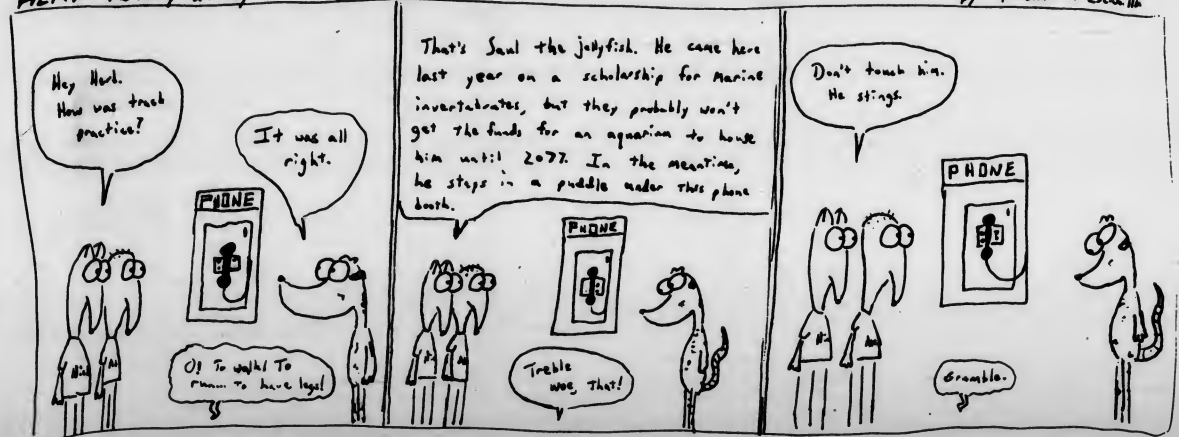 by
Hey Herb.
How was track
practice?
It was all
right.
PHONE
O! To walk! To
run... To have legs!
That's Saul the jellyfish. He came here
last year on a scholarship for marine
invertabrates, but they probably won't
get the funds for an aquarium to house
him until 2077. In the meantime,
he stays in a puddle under this phone
booth.
PHONE
Treble
woe, that!
Don't touch him.
He stings.
PHONE
Grumble.